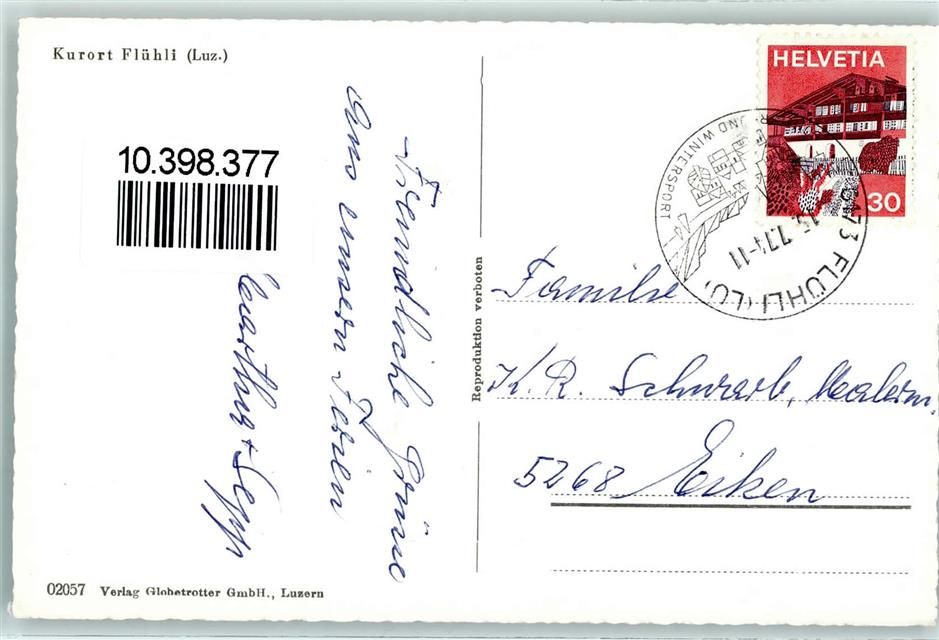 Kurort Flühli (Luz.)
10.398.377
Freundliche Grüsse
aus unsern Ferien
Martha + Sepp
02057 Verlag Globetrotter GmbH., Luzern
Reproduktion verboten
HELVETIA
30
UND WINTERSPORT
6173 FLÜHLI (LU)
15.7.74-11
Familie
K. R. Schwarb, Malerm.
5268 Eiken